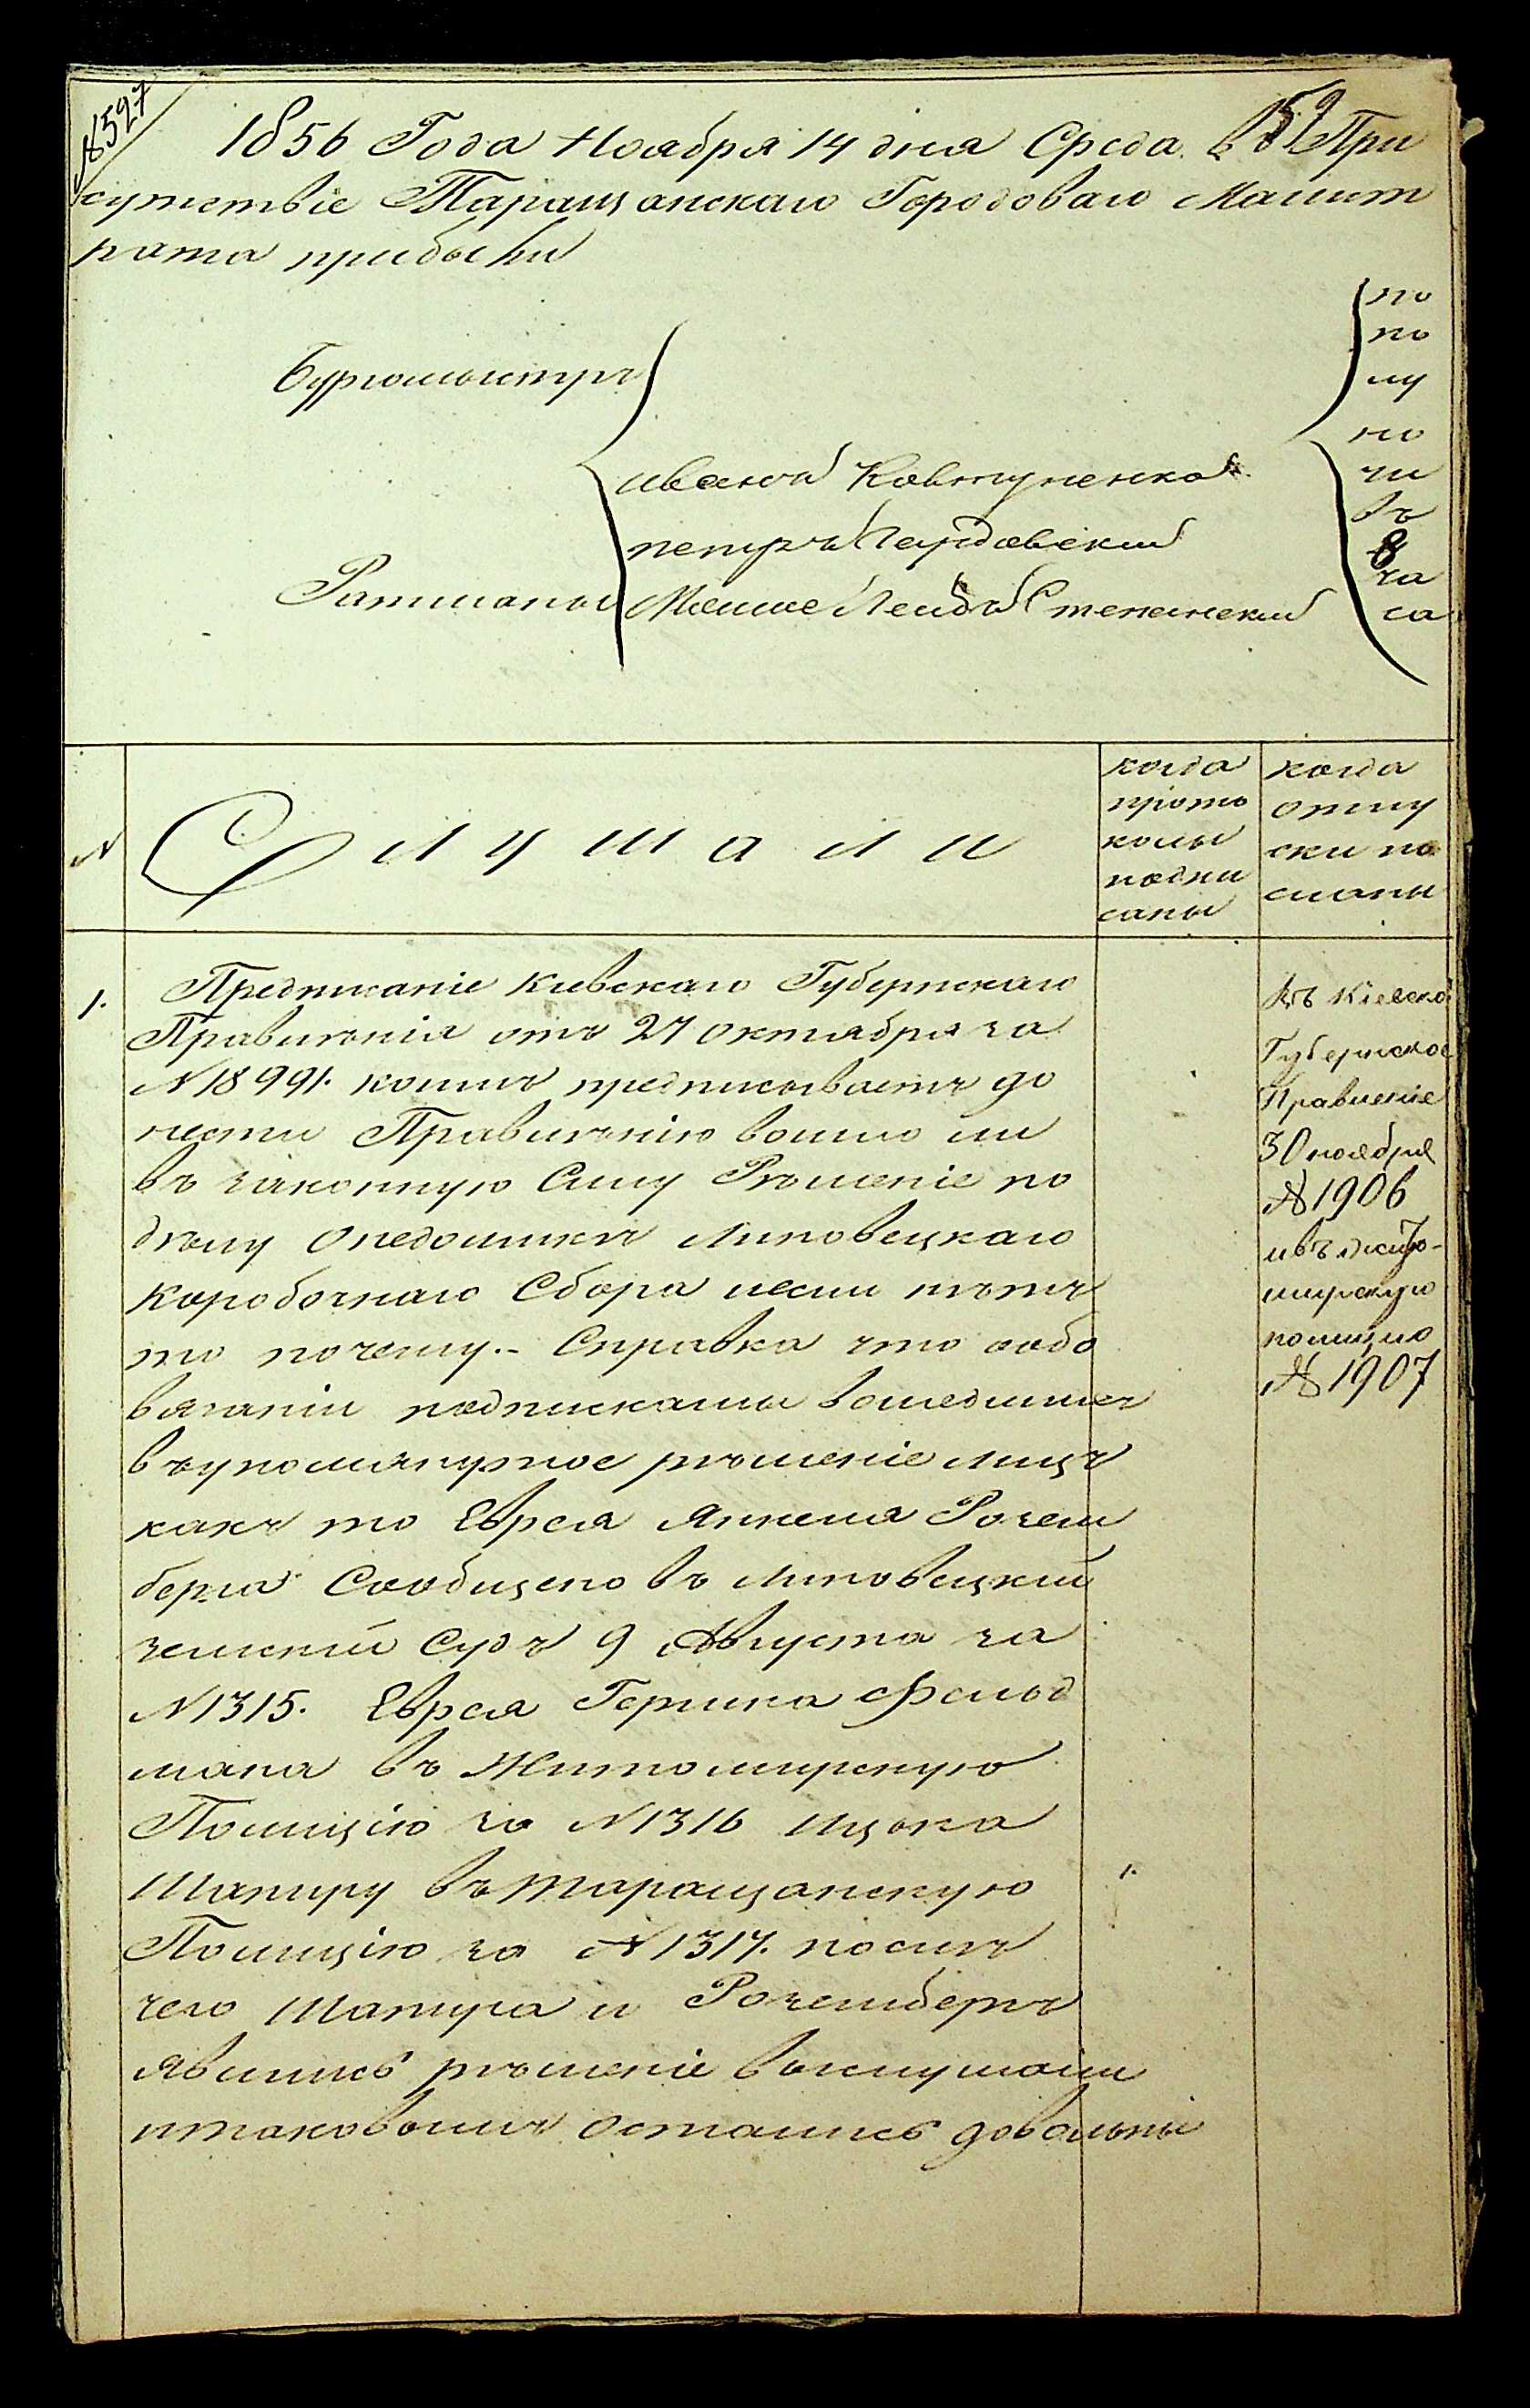 №527
159
1856 Года Ноября 14 дня Среда. въ При
сутствіе Таращанскаго Городоваго Магист
рата прибыли
Бургомыстръ
Ратманы
иванъ Ковтуненко
петръ
Мошке Лейбъ
по
по
лу
но
чи
въ
8
ча
са
N
Слушали
когда
прото
колы
подпи
саны
когда
отпу
ски по
сланы
1.
Предписаніе Кіевскаго Губернскаго
Правленія отъ 27 октября за
N 18991. коимъ предписываетъ до
нести Правленію вошло ли
въ законную Силу Рѣшеніе по
дѣлу Онедоимкѣ Липовецкаго
Коробочнаго Сбора иесли нѣтъ
то почему.- Справка что ообо
вязаніи подписками вошедшихъ
въупомянутое рѣшеніе лицъ
какъ то Еврея Янкеля Розен
берга Сообщено въ Липовецкій
земскій Судъ 9 Августа за
N 1315. Еврея Гершка Фельд
мана въ Житомирскую
Полицію за N 1316 Ицька
Шапиру въ Таращанскую
Полицію за N 1317. послѣ
чего Шапира и Розенбергъ
явились рѣшеніе выслушали
итаковымъ остались довольны
Въ Кіевское
Губернское
Правленіе
30 ноября
№ 1906
ивъ жито-
мирскую
полицію
№ 1907